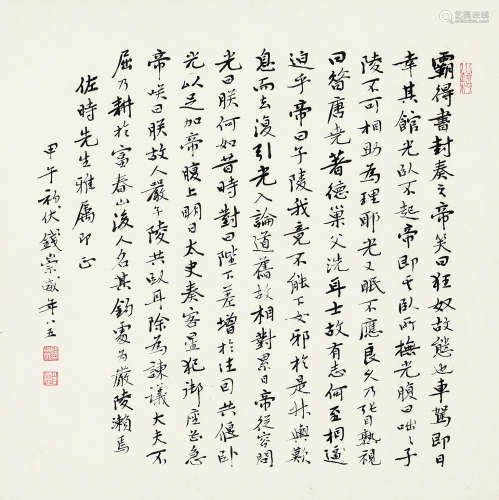 霸得書封奏之帝笑曰狂奴故態也車駕即日
幸其館光臥不起帝即其臥所撫光腹曰咄咄子
陵不可相助為理耶光又眠不應良久乃張目熟視
曰昔唐堯著德巢父洗耳士故有志何至相逼
迫乎帝曰子陵我竟不能下女邪於是升輿歎
息而去復引光入論道舊故相對累日帝從容問
光曰朕何如昔時對曰陛下差增於往因共偃臥
光以足加帝腹上明日太史奏客星犯御座甚急
帝笑曰朕故人嚴子陵共臥耳除為諫議大夫不
屈乃耕於富春山後人名其釣處為嚴陵瀨焉
佐時先生雅屬即正
甲午初伏錢崇威年八五